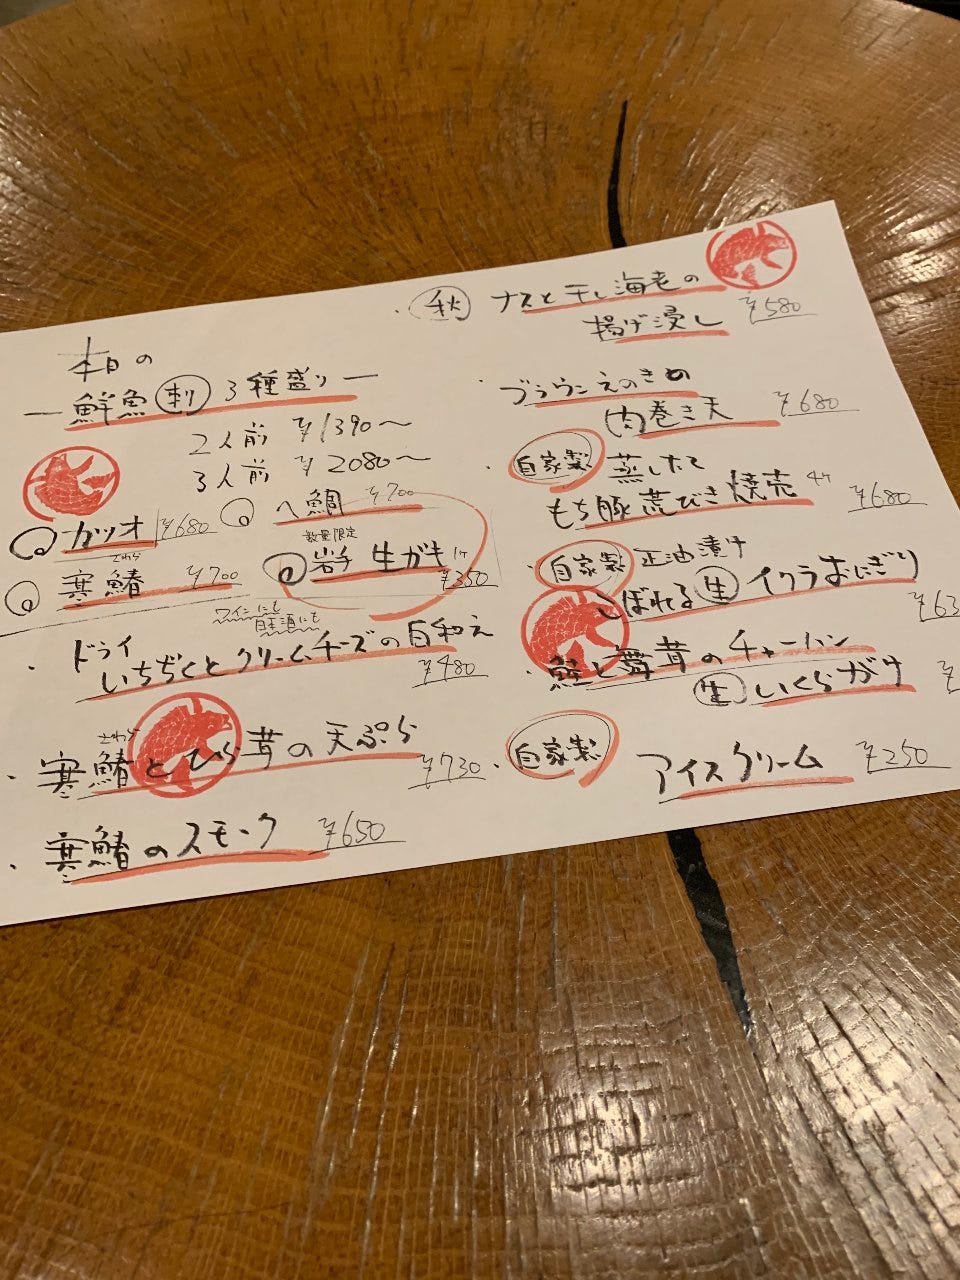 本日の
ー鮮魚 刺 3種盛りー
2人前 ¥1390〜
3人前 ¥2080〜
カツオ ¥680
へ鯛 ¥700
さわら
寒鰆 ¥700
数量限定
岩手 生ガキ 1ケ
¥350
ワインにも
日本酒にも
・ドライ
いちぢくとクリームチーズの白和え
¥480
さわら
・寒鰆とひら茸の天ぷら
¥730
・寒鰆のスモーク ¥650
・秋 ナスと干し海老の
揚げ浸し ¥580
・ブラウンえのきの
肉巻き天 ¥680
・自家製 蒸したて
もち豚荒びき焼売 4ケ ¥680
・自家製 正油漬け
こぼれる 生 イクラおにぎり
¥63
・鮭と舞茸のチャーハン
生 いくらがけ ¥
・自家製 アイスクリーム ¥250